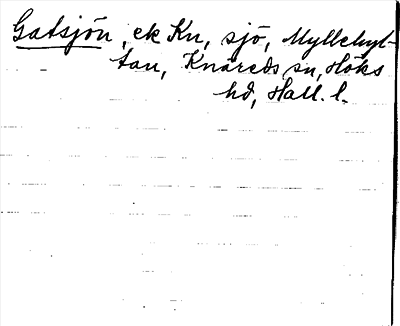 Gatsjön, ek Kn, sjö, Myllehyl-
tan, Knäreds sn, Höks
hd, Hall. l.